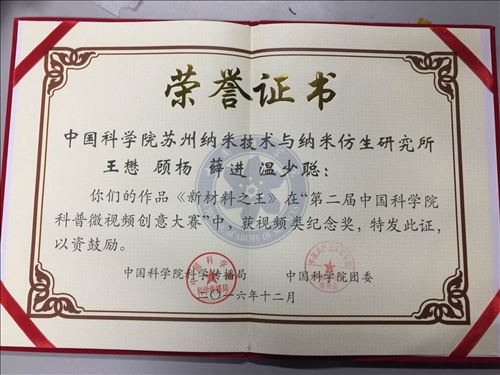 荣誉证书
中国科学院苏州纳米技术与纳米仿生研究所
王懋 顾杨 薛进 温少聪：
你们的作品《新材料之王》在“第二届中国科学院
科普微视频创意大赛”中，获视频类纪念奖，特发此证，
以资鼓励。
中国科学院科学传播局 中国科学院团委
二〇一六年十二月